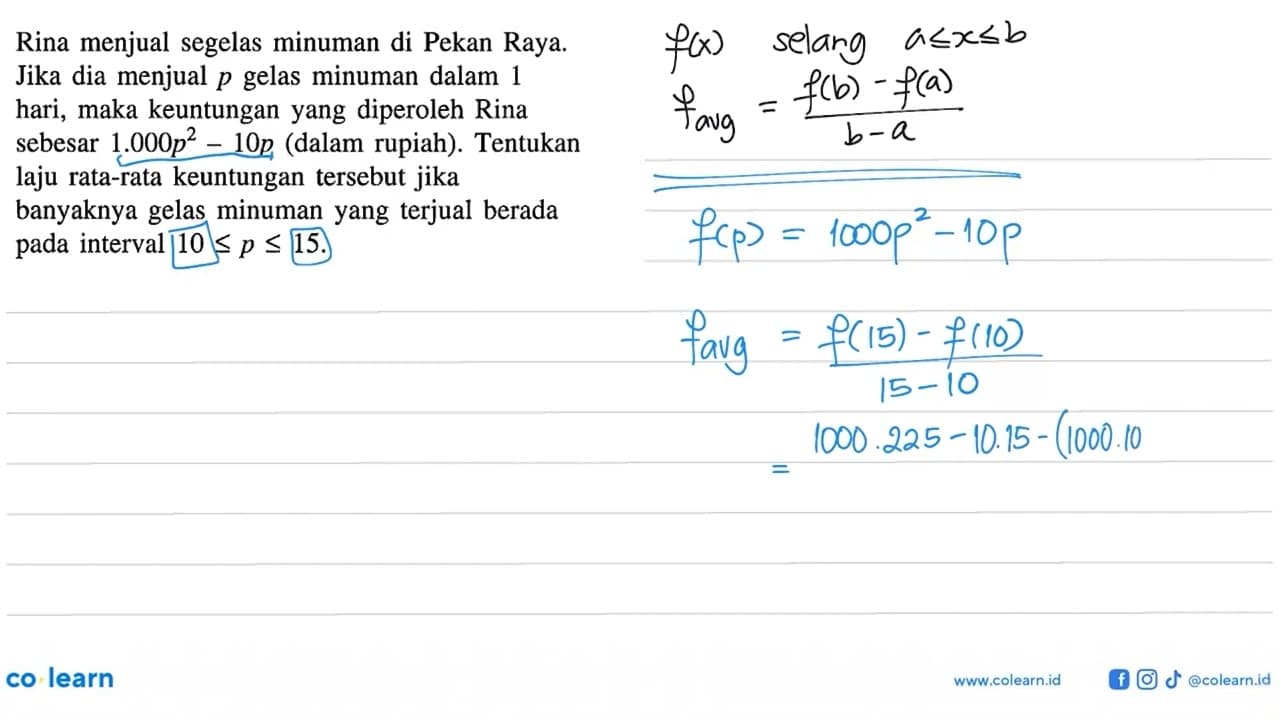 Rina menjual segelas minuman di Pekan Raya.
Jika dia menjual p gelas minuman dalam 1
hari, maka keuntungan yang diperoleh Rina
sebesar 1.000p² – 10p (dalam rupiah). Tentukan
laju rata-rata keuntungan tersebut jika
banyaknya gelas minuman yang terjual berada
pada interval 10 ≤ p ≤ 15.
f(x) selang a≤x≤b
f avg = f(b) - f(a)
b-a
f(p) = 1000p² - 10p
f avg = f(15) - f(10)
15-10
1000.225 - 10.15 - (1000.10
=
co learn
www.colearn.id @colearn.id